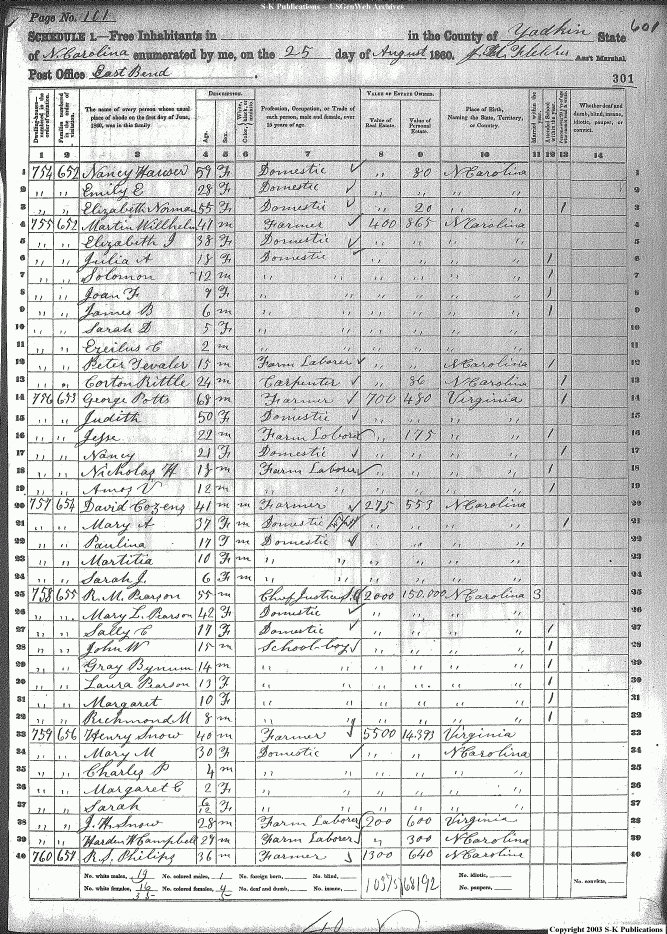 S-K Publications - USGenWeb Archives
Page No. 101
601
SCHEDULE 1.—Free Inhabitants in in the County of Yadkin State
of N. Carolina enumerated by me, on the 25 day of August 1860. Ass't Marshal
Post Office East Bend
301
Dwelling-houses numbered in the order of visitation.
Families numbered in the order of visitation.
The name of every person whose usual place of abode on the first day of June, 1860, was in this family.
DESCRIPTION.
Age.
Sex.
Color,
Profession, Occupation, or Trade of each person, male and female, over 15 years of age.
VALUE OF ESTATE OWNED.
Value of Real Estate.
Value of Personal Estate.
Place of Birth, Naming the State, Territory, or Country.
Married within the year.
Attended School within the year.
Whether deaf and dumb, blind, insane, idiotic, pauper, or convict.
1 2 3 4 5 6 7 8 9 10 11 12 13 14
1 754 652 Nancy Hauser 59 F Domestic " 80 N Carolina 1
2 " " Emily E 28 F Domestic " " 2
3 " " Elizabeth Norman 55 F Domestic " 20 " 1 3
4 755 652 Martin Willhelm 47 m Farmer 400 865 N Carolina 4
5 " " Elizabeth J 38 F Domestic " " " 5
6 " " Julia A 18 F Domestic " " " 1 6
7 " " Solomon 12 m " " " " " 1 7
8 " " Joan F 9 F " " " " " 1 8
9 " " James B 6 m " " " " " 1 9
10 " " Sarah D 5 F " " " " " 10
11 " " 2 m " " " " " 11
12 " " Peter 15 m Farm Laborer " " N Carolina 1 12
13 " " Corton Kittle 24 m Carpenter " 86 N Carolina 1 13
14 756 653 George Potts 68 m Farmer 700 480 Virginia 1 14
15 " " Judith 50 F Domestic " " " 15
16 " " Jesse 22 m Farm Laborer " 175 " 1 16
17 " " Nancy 21 F Domestic " " " 1 17
18 " " Nicholas H 18 m Farm Laborer " " " 1 18
19 " " Amos V 12 m " " " 1 19
20 757 654 David Cozens 41 m m Farmer 275 553 N Carolina 20
21 " " Mary A 37 F m Domestic " " " 1 21
22 " " Paulina 17 m Domestic " " " 22
23 " " Martitia 10 F m " " " " " 23
24 " " Sarah J. 6 F m " " " " " 24
25 758 655 R. M. Pearson 55 m Chief Justice 2000 150.000 N Carolina 3 25
26 " " Mary L. Pearson 42 F Domestic " " " 26
27 " " Sally C 17 F Domestic " " " 1 27
28 " " John W 15 m School-boy " " " 1 28
29 " " Gray Bynum 14 m " " " " " 1 29
30 " " Laura Pearson 13 F " " " " " 1 30
31 " " Margaret 10 F " " " " " 1 31
32 " " Richmond M 8 m " " " " " 1 32
33 759 656 Henry Snow 40 m Farmer 5500 14.393 Virginia 33
34 " " Mary M 30 F Domestic " " N Carolina 34
35 " " Charles P 4 m " " " " " 35
36 " " Margaret C 2 F " " " " " 36
37 " " Sarah 6/12 F " " " " " 37
38 " " J. H. Snow 28 m Farm Laborer 200 600 Virginia 38
39 " " Harden W Campbell 29 m Farm Laborer " 300 N Carolina 39
40 760 657 R. S. Philips 36 m Farmer 1300 640 N Carolina 40
No. white males, 19 No. colored males, 1 No. foreign born, No. blind, No. idiotic, No. convicts,
No. white females, 16 No. colored females, 4 No. deaf and dumb, No. insane, 10375 168192 No. paupers,
35 5
40
Copyright 2003 S-K Publications